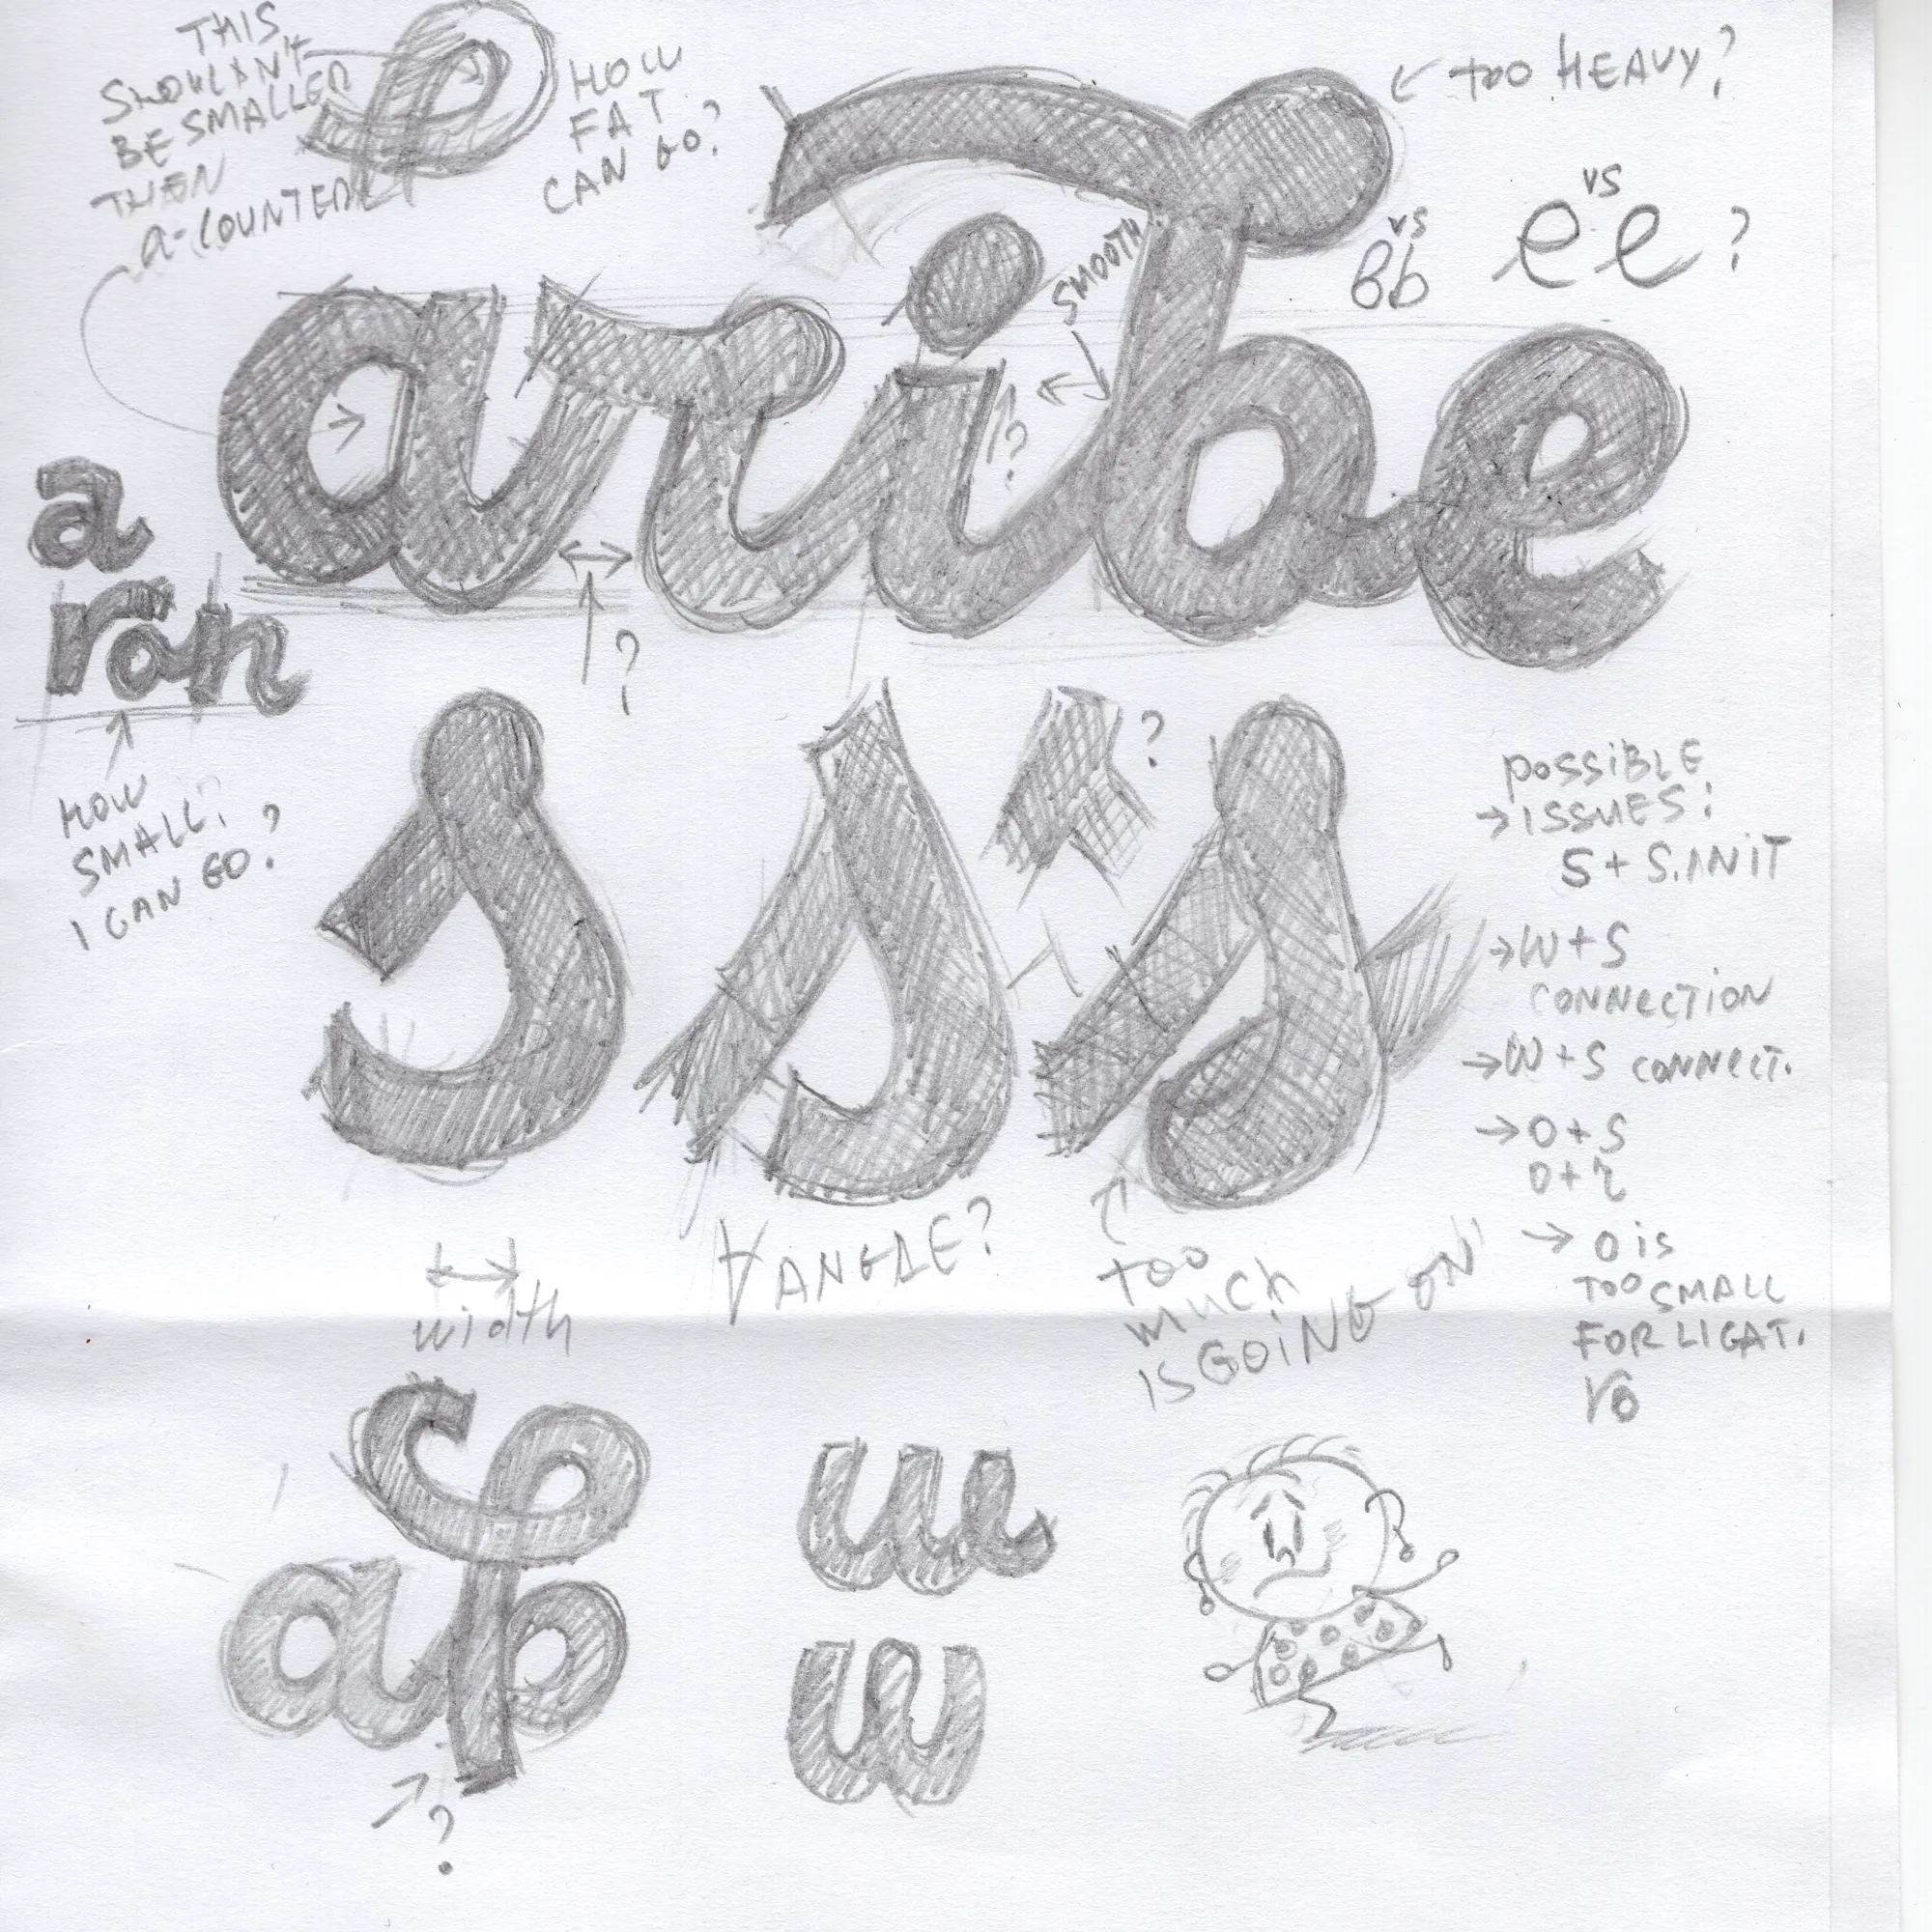 THIS
SHOULDN'T
BE SMALLER
THEN
a-COUNTER
HOW
FAT
CAN GO?
← too HEAVY?
vs
Bb
vs
e e ?
SMOOTH
?
aribe
a
ron
?
HOW
SMALL
I CAN GO?
s s s
?
POSSIBLE
→ ISSUES:
S + S.INIT
→ W + S
CONNECTION
→ W + S CONNECT.
→ O + S
O + r
→ O is
TOO SMALL
FOR LIGAT.
ro
width
ANGLE?
too
much
IS GOING ON
ap
w
w
?